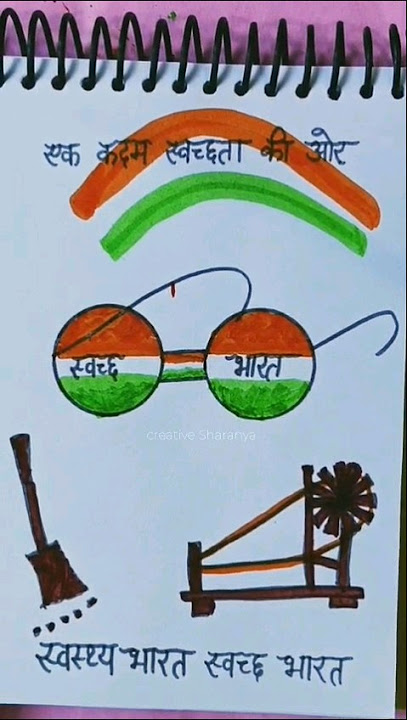 एक कदम स्वच्छता की ओर
स्वच्छ भारत
creative Sharanya
स्वस्थ्य भारत स्वच्छ भारत